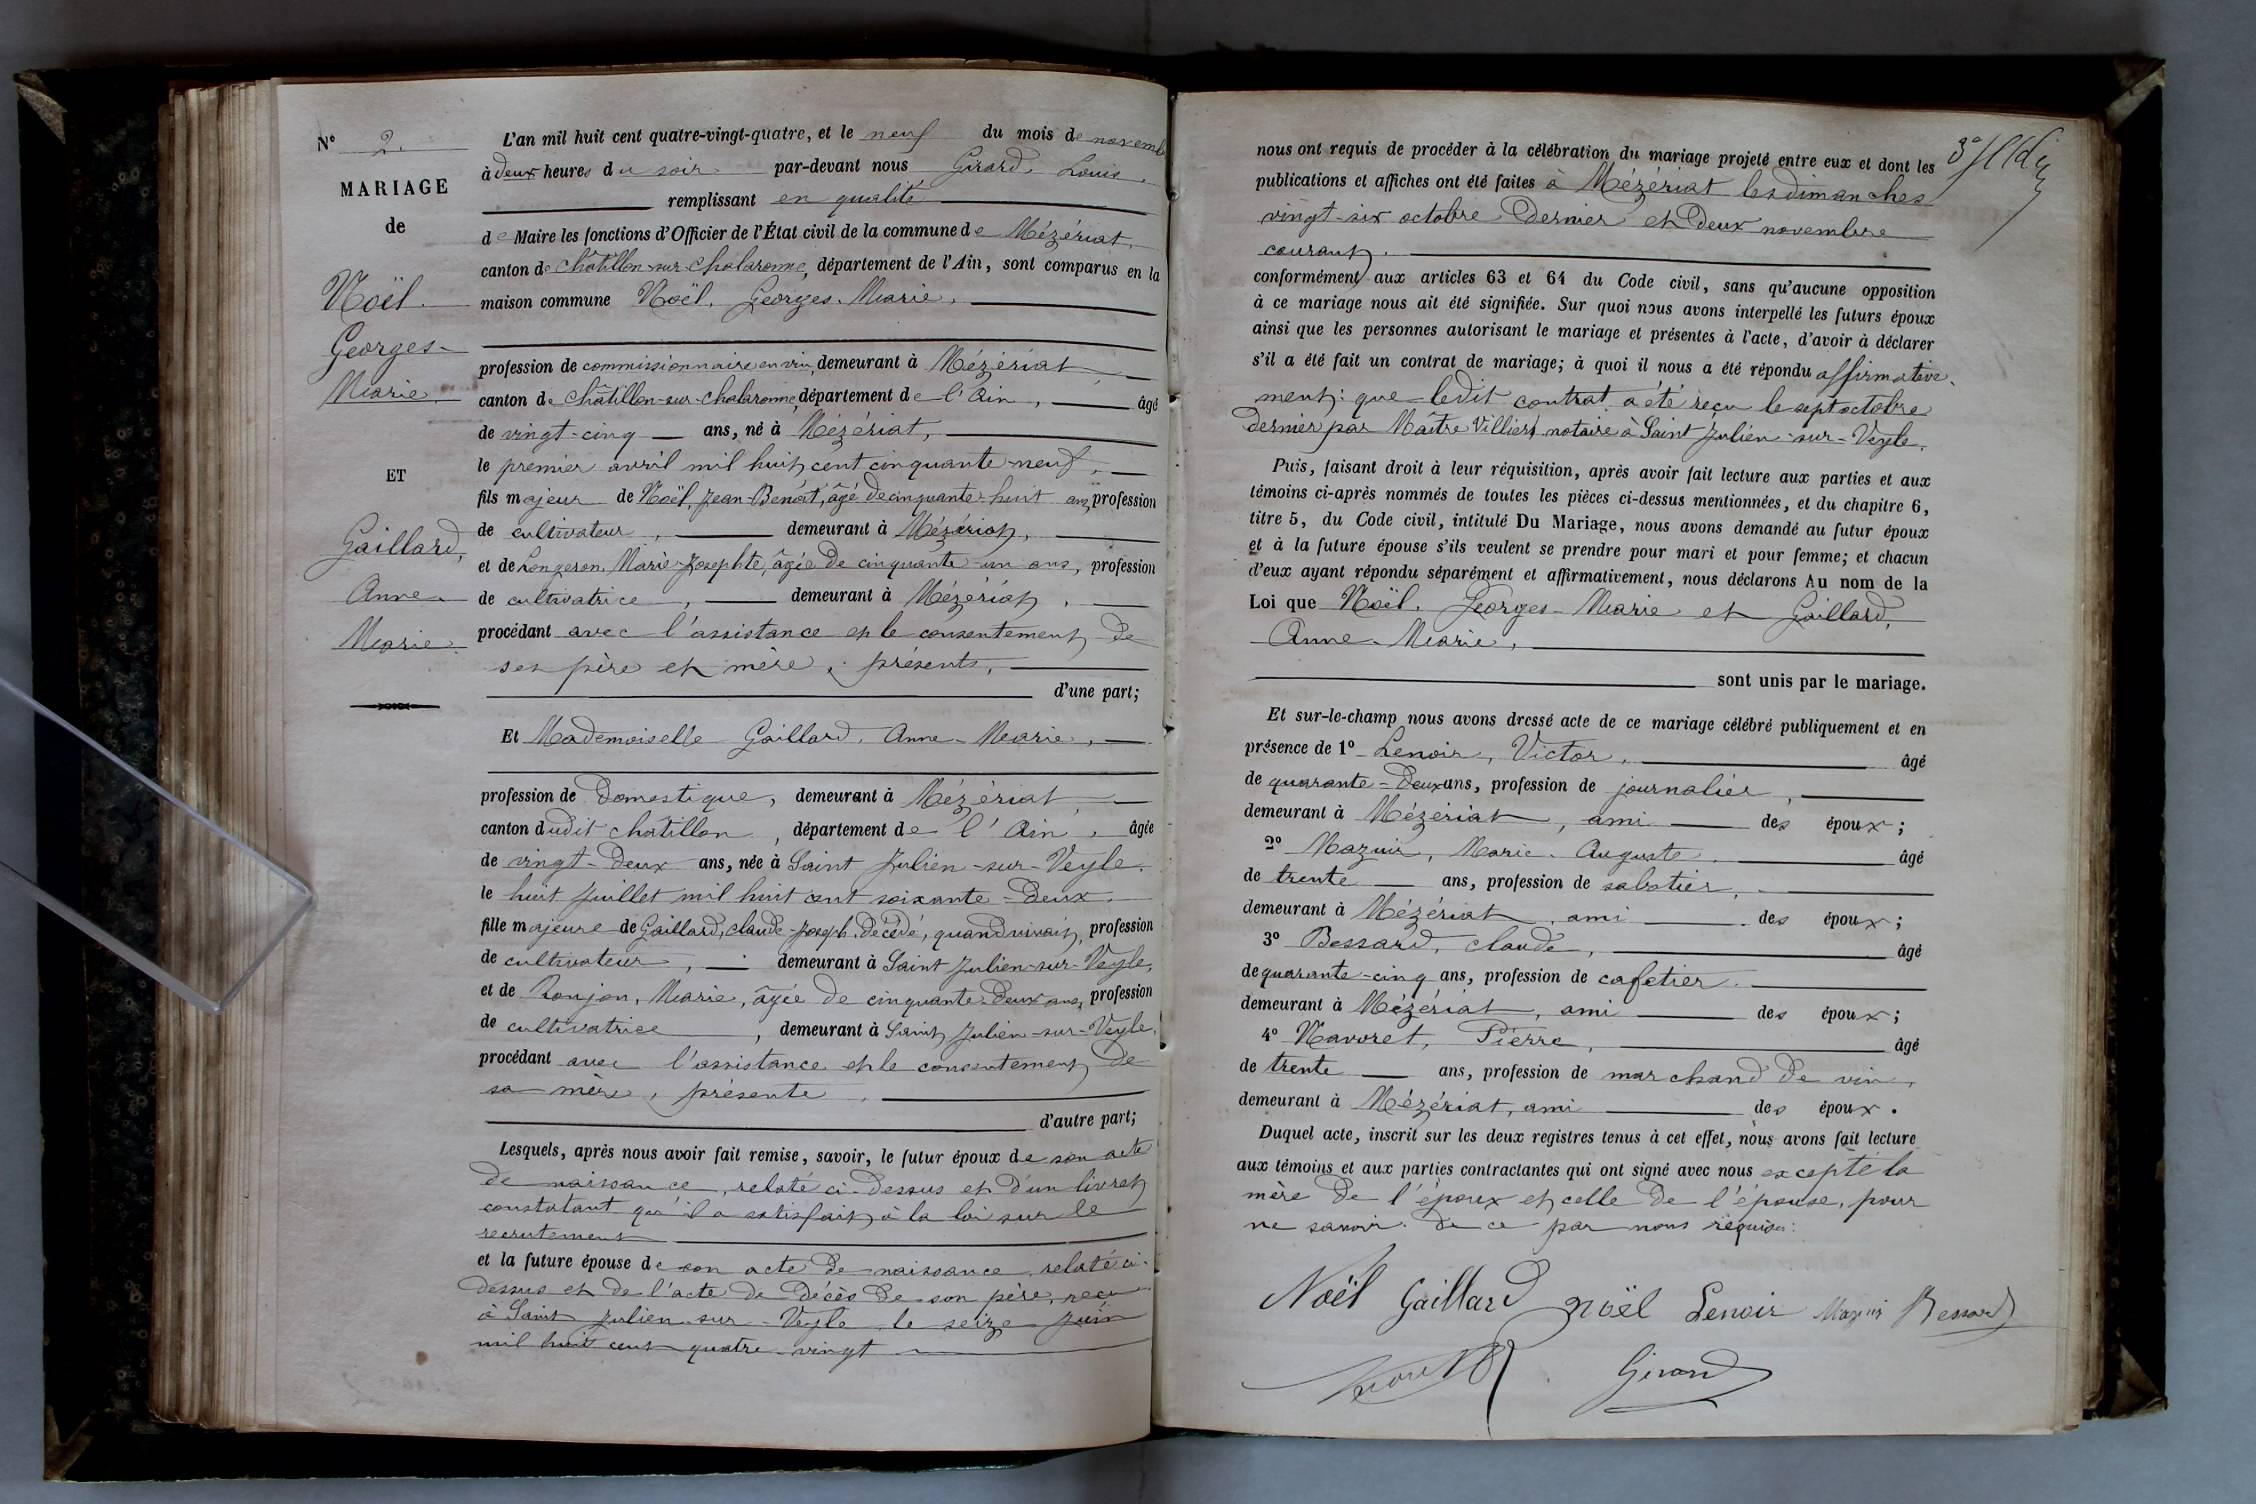 N° 2.
MARIAGE
de
Noël
Georges-
Marie.
ET
Gaillard,
Anne-
Marie.
L'an mil huit cent quatre-vingt-quatre, et le neuf du mois de novemb
à deux heures du soir par-devant nous Girard, Louis,
remplissant en qualité
de Maire les fonctions d'Officier de l'État civil de la commune de Mézériat,
canton de Châtillon-sur-Chalaronne, département de l'Ain, sont comparus en la
maison commune Noël, Georges-Marie,
profession de commissionnaire en vin, demeurant à Mézériat,
canton de Châtillon-sur-Chalaronne, département de l'Ain, âgé
de vingt-cinq ans, né à Mézériat,
le premier avril mil huit cent cinquante-neuf,
fils majeur de Noël, Jean-Benoît, âgé de cinquante-huit ans, profession
de cultivateur, demeurant à Mézériat,
et de Longeron, Marie-Josephte, âgée de cinquante-un ans, profession
de cultivatrice, demeurant à Mézériat,
procédant avec l'assistance et le consentement de
ses père et mère, présents,
d'une part;
Et Mademoiselle Gaillard, Anne-Marie,
profession de domestique, demeurant à Mézériat,
canton dudit châtillon, département de l'Ain, âgée
de vingt-deux ans, née à Saint Julien-sur-Veyle,
le huit juillet mil huit cent soixante-deux,
fille majeure de Gaillard, claude-Joseph, décédé, quand vivait, profession
de cultivateur, demeurant à Saint Julien-sur-Veyle,
et de Roujon, Marie, âgée de cinquante-deux ans, profession
de cultivatrice, demeurant à Saint Julien-sur-Veyle,
procédant avec l'assistance et le consentement de
sa mère, présente,
d'autre part;
Lesquels, après nous avoir fait remise, savoir, le futur époux de son acte
de naissance, relaté ci-dessus et d'un livret
constatant qu'il a satisfait à la loi sur le
recrutement
et la future épouse de son acte de naissance, relaté ci-
dessus et de l'acte de décès de son père, reçu
à Saint Julien-sur-Veyle le seize juin
mil huit cent quatre-vingt
nous ont requis de procéder à la célébration du mariage projeté entre eux et dont les
publications et affiches ont été faites à Mézériat les dimanches
vingt-six octobre dernier et deux novembre
courant.
conformément aux articles 63 et 64 du Code civil, sans qu'aucune opposition
à ce mariage nous ait été signifiée. Sur quoi nous avons interpellé les futurs époux
ainsi que les personnes autorisant le mariage et présentes à l'acte, d'avoir à déclarer
s'il a été fait un contrat de mariage; à quoi il nous a été répondu affirmative-
ment: que ledit contrat a été reçu le sept octobre
dernier par Maître Villiers notaire à Saint Julien-sur-Veyle.
Puis, faisant droit à leur réquisition, après avoir fait lecture aux parties et aux
témoins ci-après nommés de toutes les pièces ci-dessus mentionnées, et du chapitre 6,
titre 5, du Code civil, intitulé Du Mariage, nous avons demandé au futur époux
et à la future épouse s'ils veulent se prendre pour mari et pour femme; et chacun
d'eux ayant répondu séparément et affirmativement, nous déclarons Au nom de la
Loi que Noël, Georges-Marie et Gaillard,
Anne-Marie,
sont unis par le mariage.
Et sur-le-champ nous avons dressé acte de ce mariage célébré publiquement et en
présence de 1° Lenoir, Victor, âgé
de quarante-deux ans, profession de journalier,
demeurant à Mézériat, ami des époux;
2° Mazuir, Marie-Auguste, âgé
de trente ans, profession de sabotier,
demeurant à Mézériat, ami des époux;
3° Bessard, claude, âgé
de quarante-cinq ans, profession de cafetier,
demeurant à Mézériat, ami des époux;
4° Navoret, Pierre, âgé
de trente ans, profession de marchand de vin,
demeurant à Mézériat, ami des époux.
Duquel acte, inscrit sur les deux registres tenus à cet effet, nous avons fait lecture
aux témoins et aux parties contractantes qui ont signé avec nous excepté la
mère de l'époux et celle de l'épouse, pour
ne savoir. de ce par nous requises.
Noël Gaillard noël Lenoir Mazuir Bessard
Girard